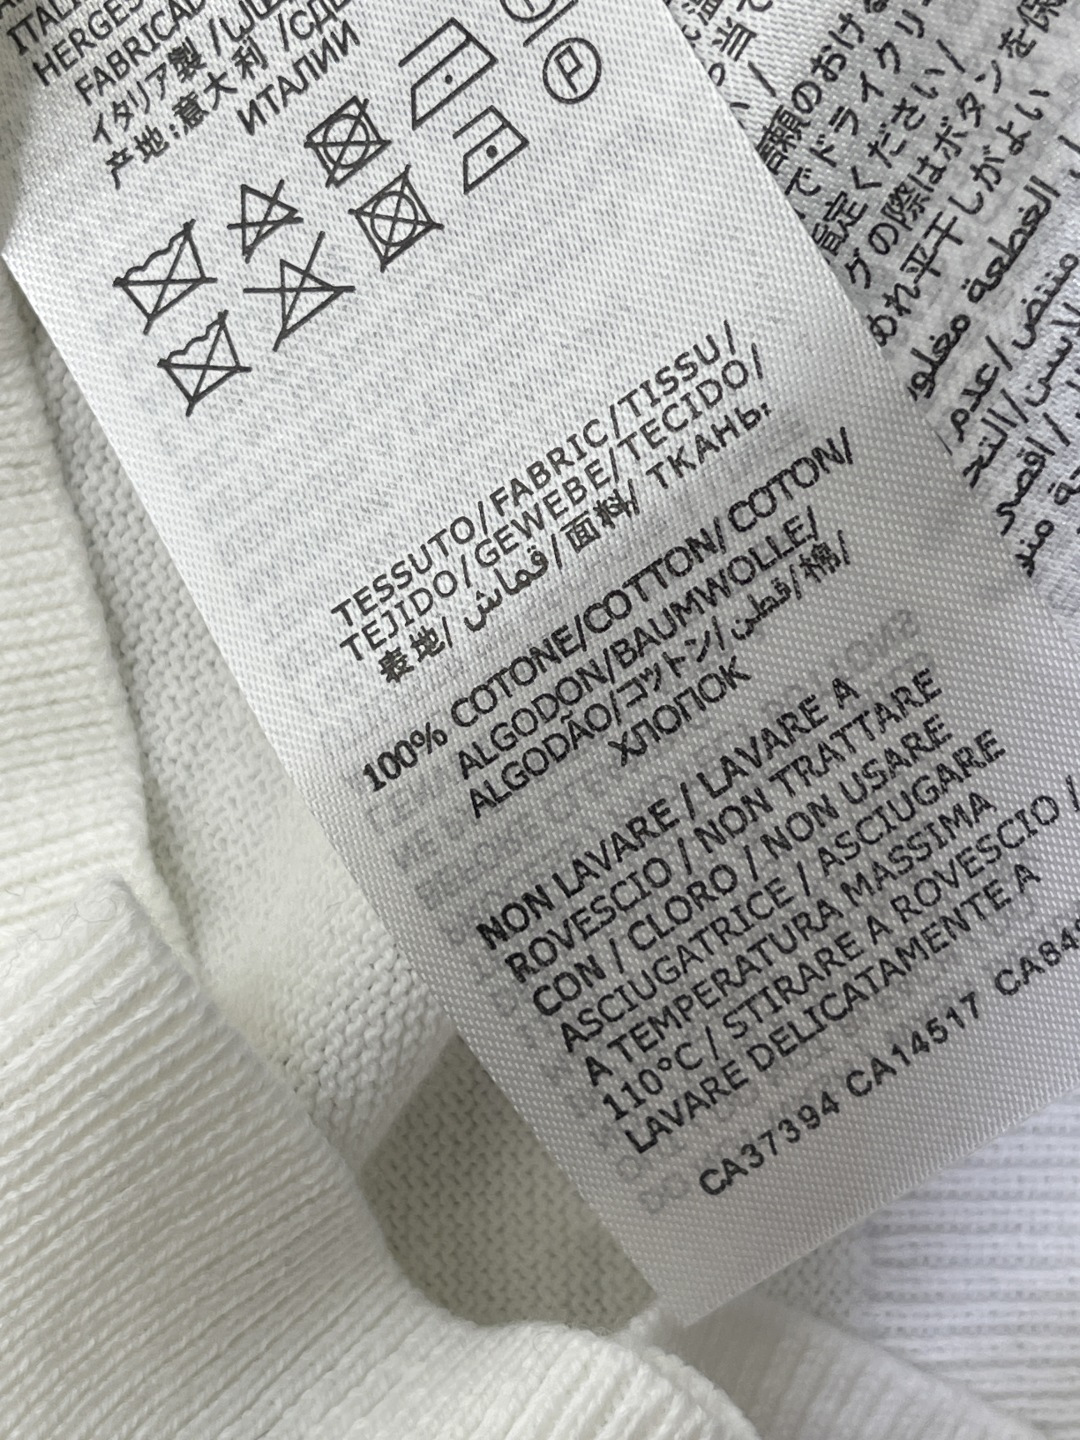 ITALI
HERGES
FABRICAD
イタリア製 /
产地:意大利 /СДЕ
ИТАЛИИ
P
TESSUTO/FABRIC/TISSU/
TEJIDO/GEWEBE/TECIDO/
表地/ قماش/ 面料/ ТКАНЬ:
100% COTONE/COTTON/ COTON/
ALGODON/BAUMWOLLE/
ALGODÃO/コットン/قطن/棉/
ХЛОПОК
NON LAVARE / LAVARE A
ROVESCIO / NON TRATTARE
CON / CLORO / NON USARE
ASCIUGATRICE / ASCIUGARE
A TEMPERATURA MASSIMA
110°C / STIRARE A ROVESCIO /
LAVARE DELICATAMENTE A
CA37394 CA14517 CA84
信頼のおける
でドライクリ
指定ください /
グの際はボタンを保
め れ平干しがよい
القطعة مغلو
منتض /عدم